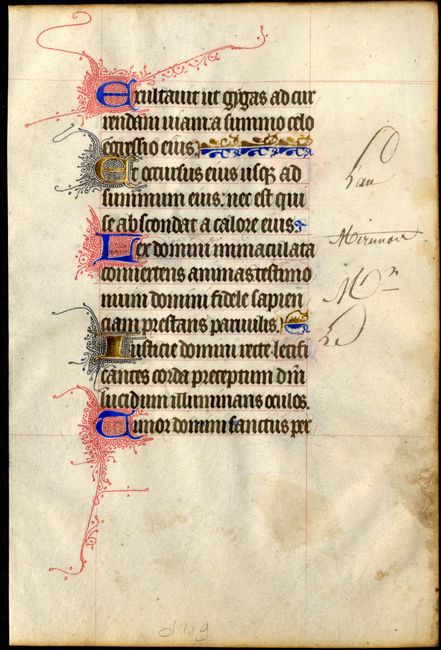 Exultauit ut gygas ad cur
rendam uiam: a summo celo
egressio eius.
Et occursus eius usqz ad
summum eius: nec est qui
se abscondat a calore eius.
Lex domini immaculata
conuertens animas: testimo
nium domini fidele sapien
ciam prestans paruulis.
Iusticie domini recte letifi
cantes corda: preceptum dñi
lucidum illuminans oculos.
Timor domini sanctus per